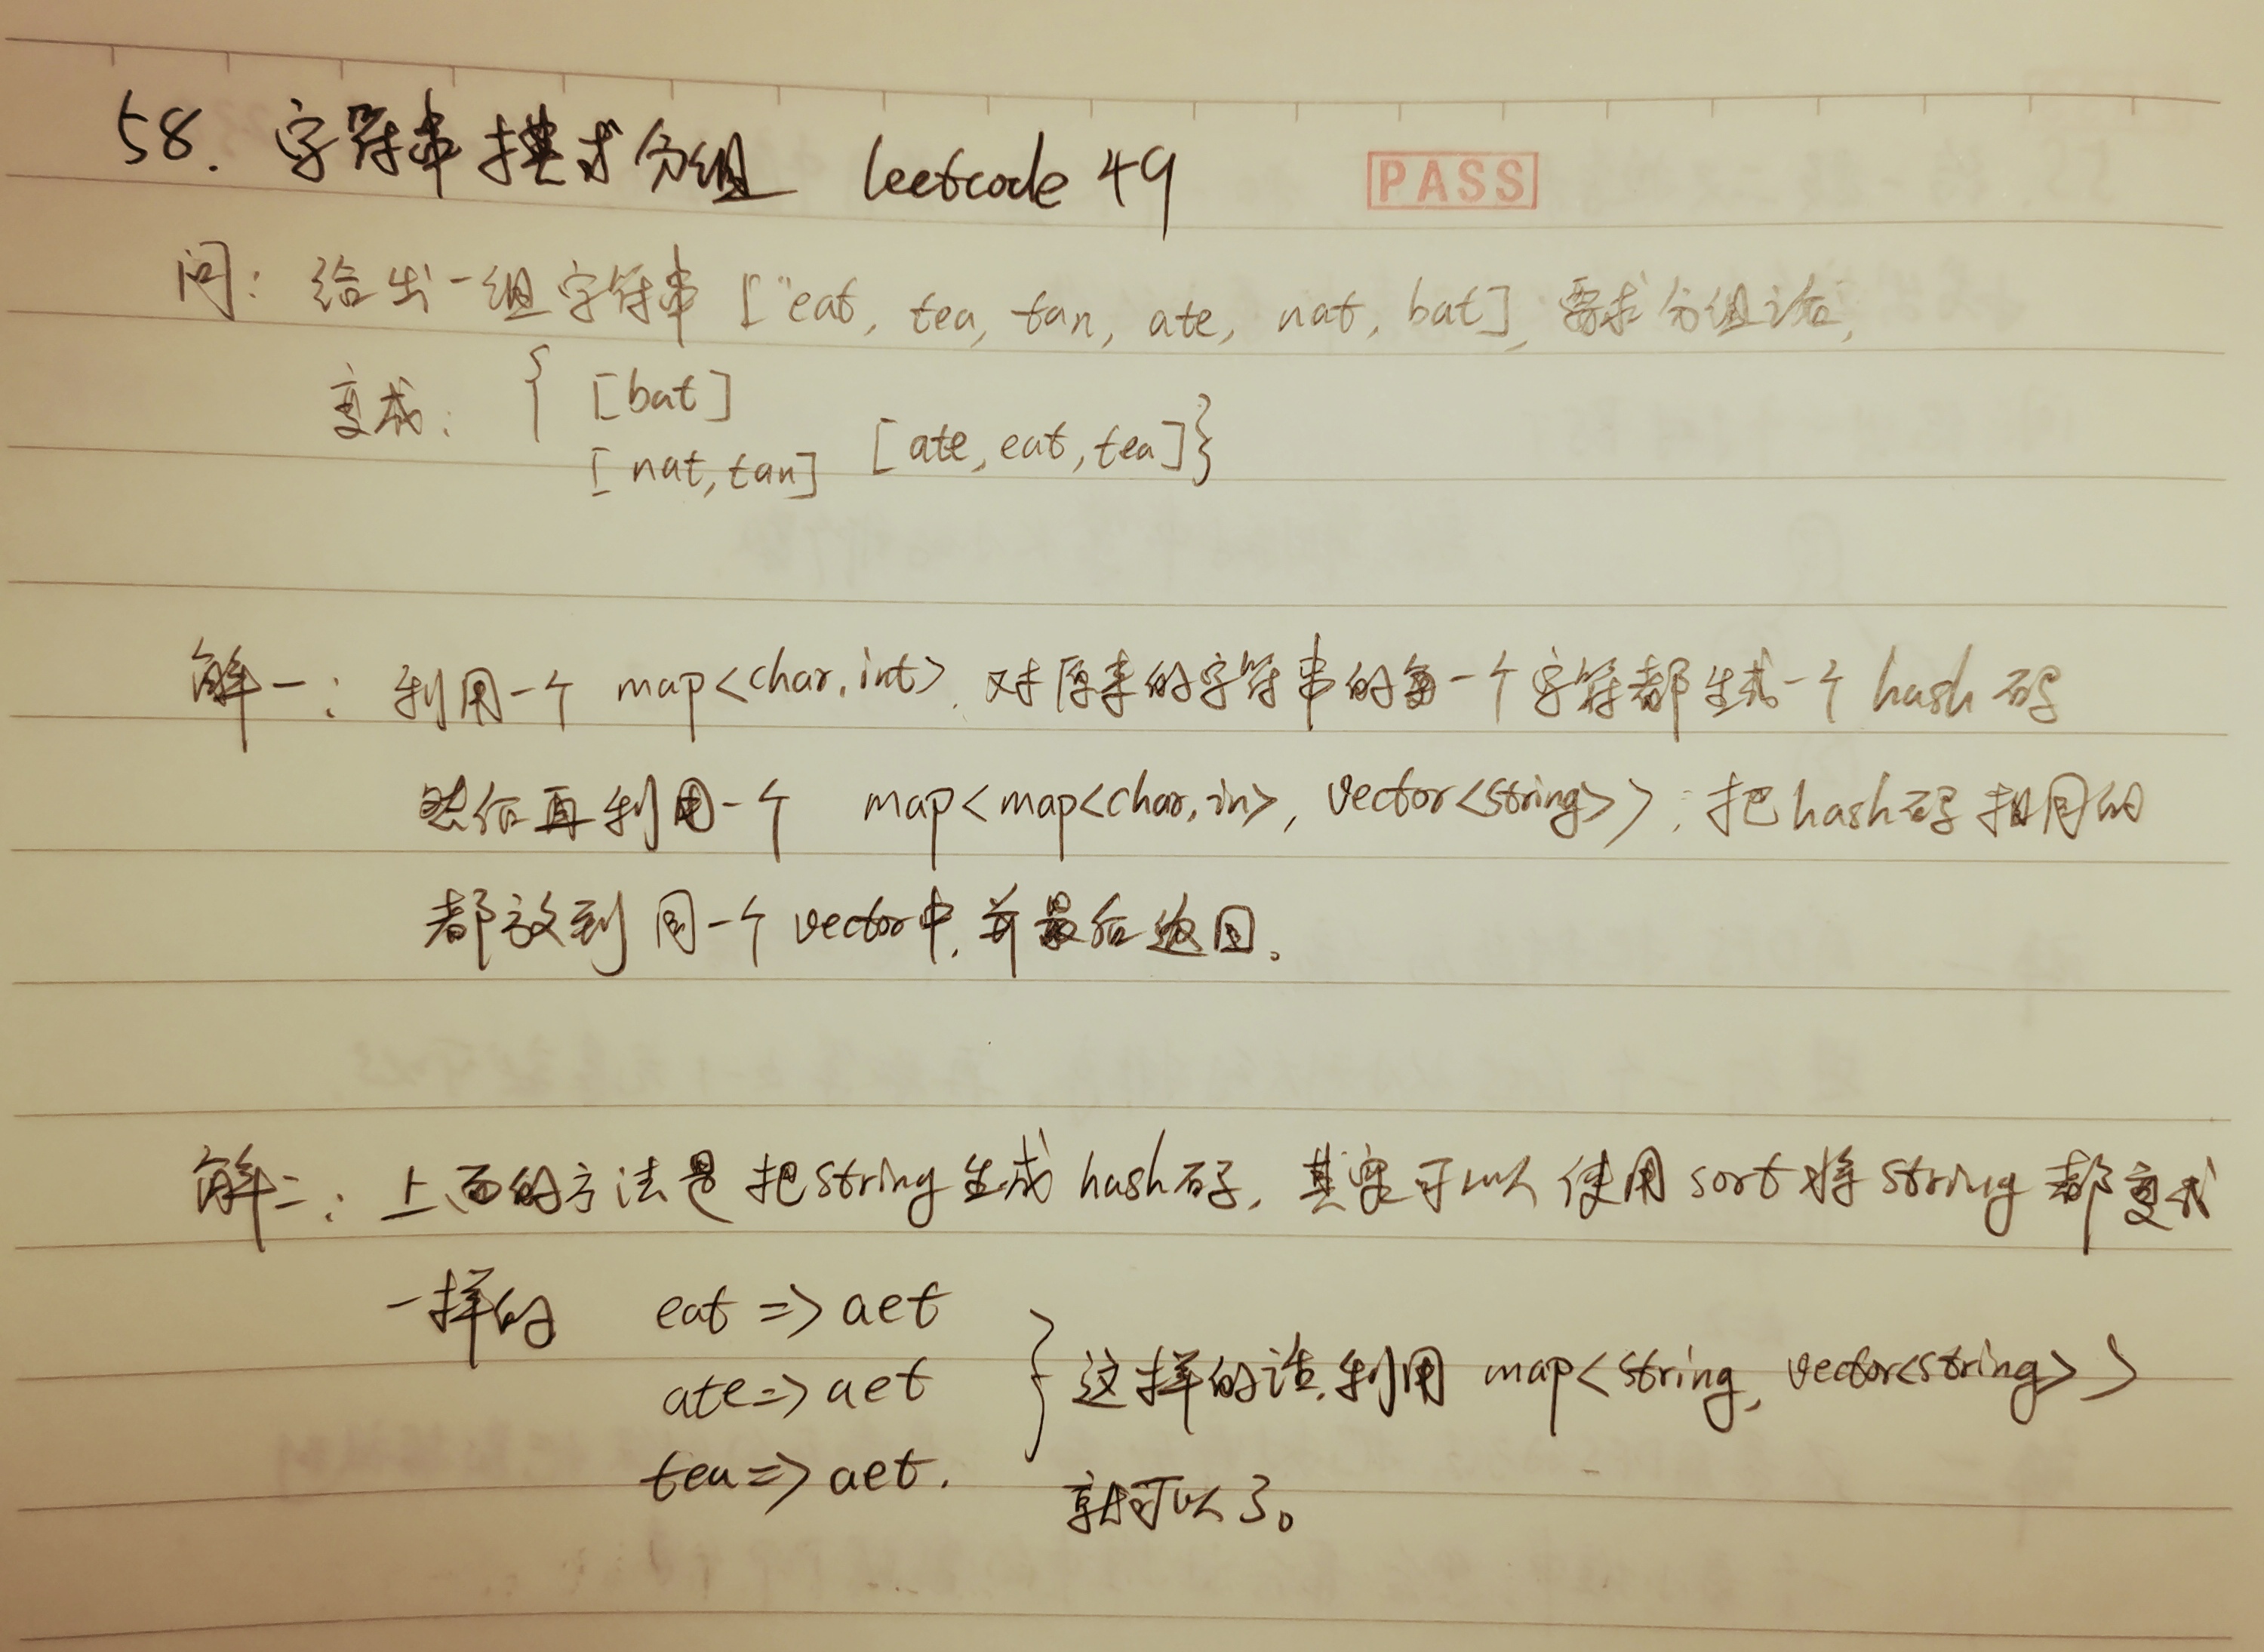 58. 字符串模式分组 leetcode 49 PASS
问: 给出一组字符串 ["eat, tea, tan, ate, nat, bat], 要求分组话,
变成: { [bat]
[nat,tan] [ate,eat,tea]}
解一: 利用一个 map<char,int>, 对原来的字符串的每一个字符都生成一个 hash 码
然后再利用一个 map<map<char,in>, vector<string>>; 把hash码相同的
都放到同一个vector中,并最后返回。
解二: 上面的方法是把string生成hash码, 其实可以使用sort将string都变成
一样的 eat => aet
ate => aet } 这样的话,利用 map<string, vector<string>>
tea => aet. 就可以了。